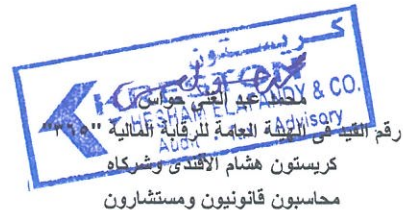 كريستون
HESHAM ELAFANDY & CO.
Audit Advisory
محمد عبد الغنى حواس
رقم القيد فى الهيئة العامة للرقابة المالية "٣٦٥"
كريستون هشام الأفندى وشركاه
محاسبون قانونيون ومستشارون